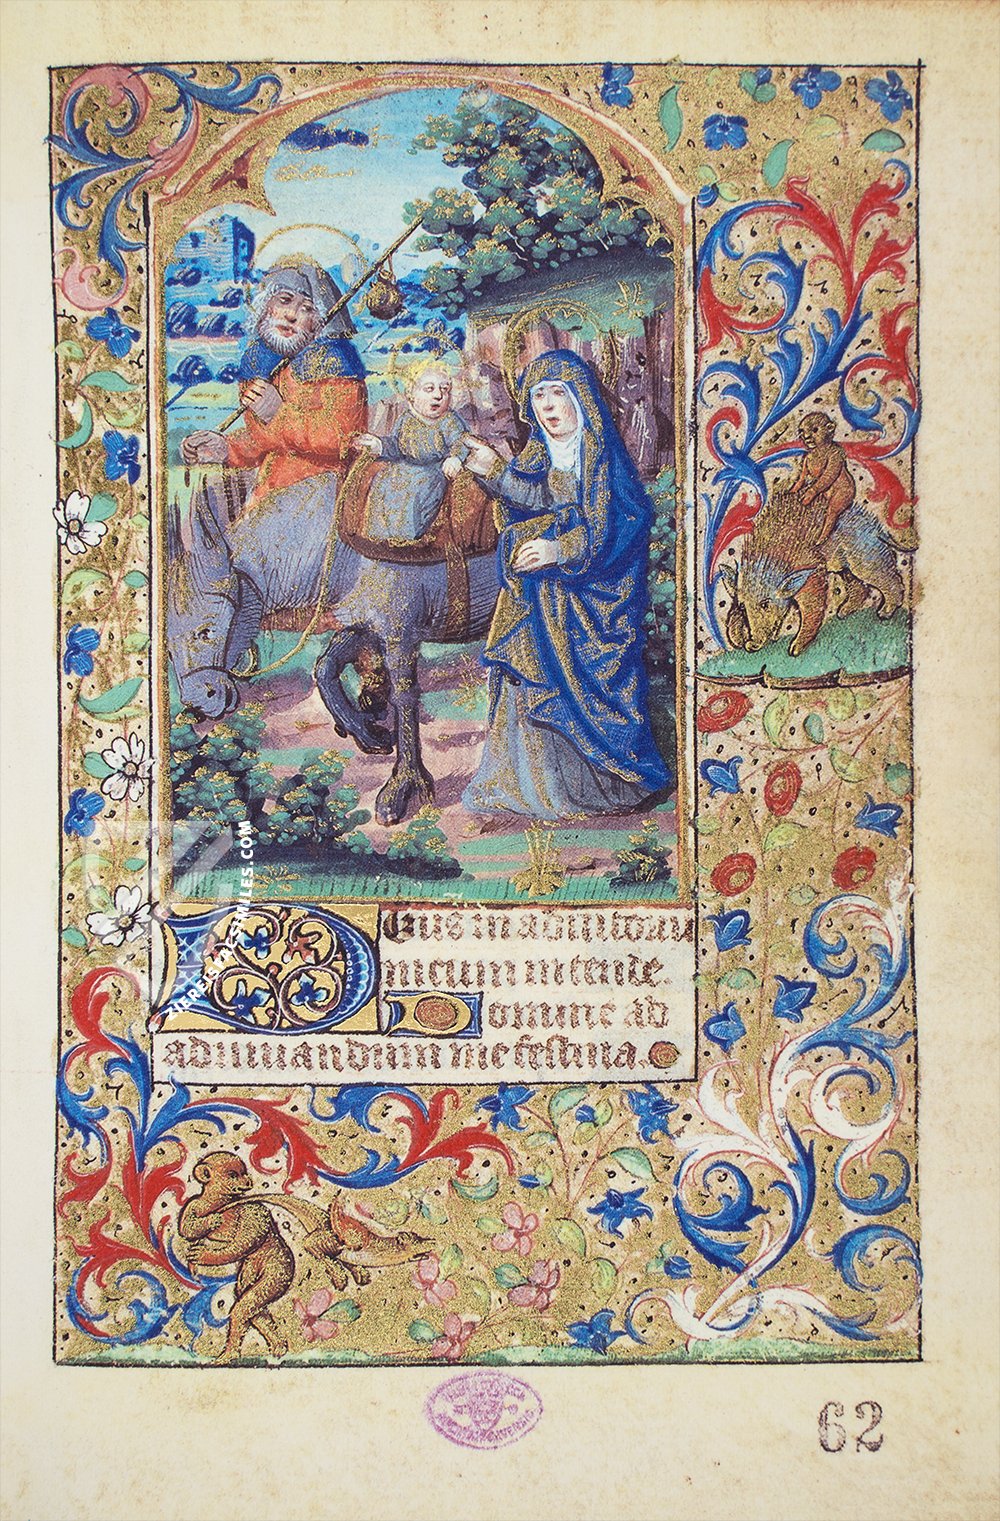 Deus in adiutoriu
meum intende.
Domine ad
adiuuandum me festina.
ZIEREIS FACSIMILES.COM
62